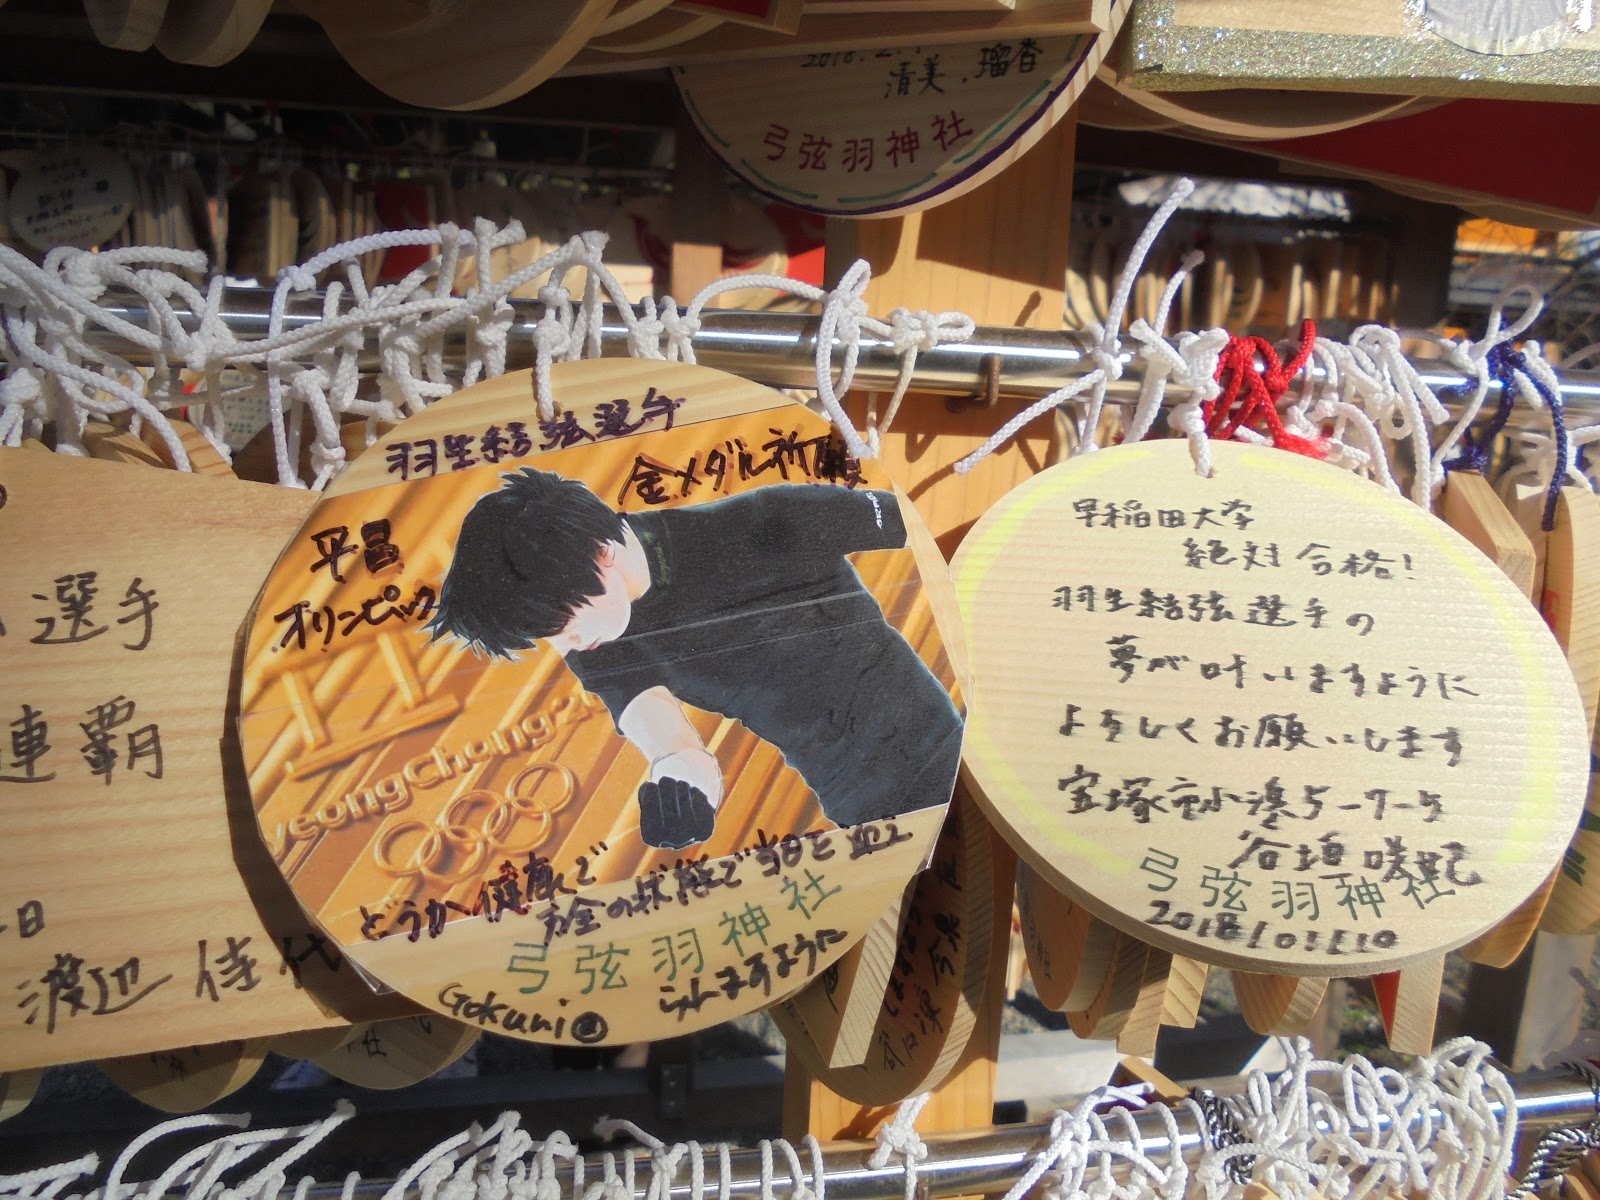 2018.2.
清美.瑠香
弓弦羽神社
選手
連覇
日
渡辺佳代
羽生結弦選手
金メダル祈願
平昌
オリンピック
yeongChang2
どうか健康で
万全の状態で当日を迎え
られますように
弓弦羽神社
Gokuni
早稲田大学
絶対合格!
羽生結弦選手の
夢が叶いますように
よろしくお願いします
宝塚市小浜5-7-5
谷垣咲
弓弦羽神社
2018/01/10